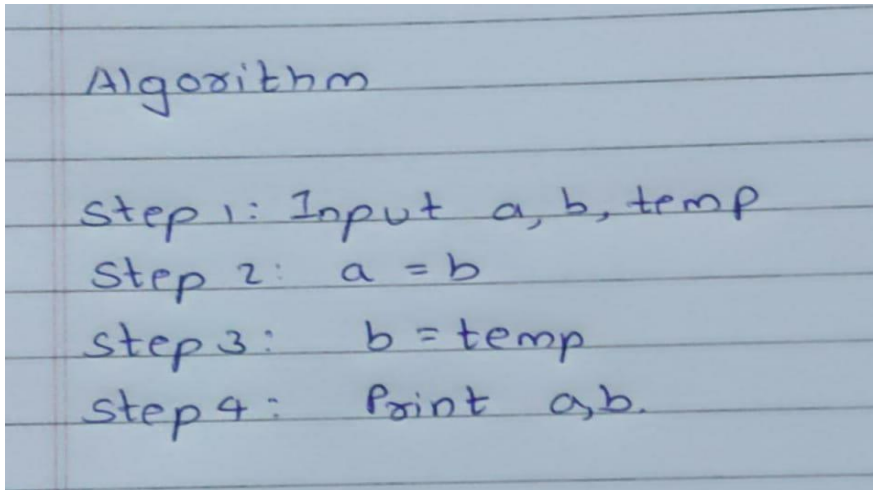 Algorithm
Step 1: Input a, b, temp
Step 2: a = b
Step 3: b = temp
Step 4: Print a,b.